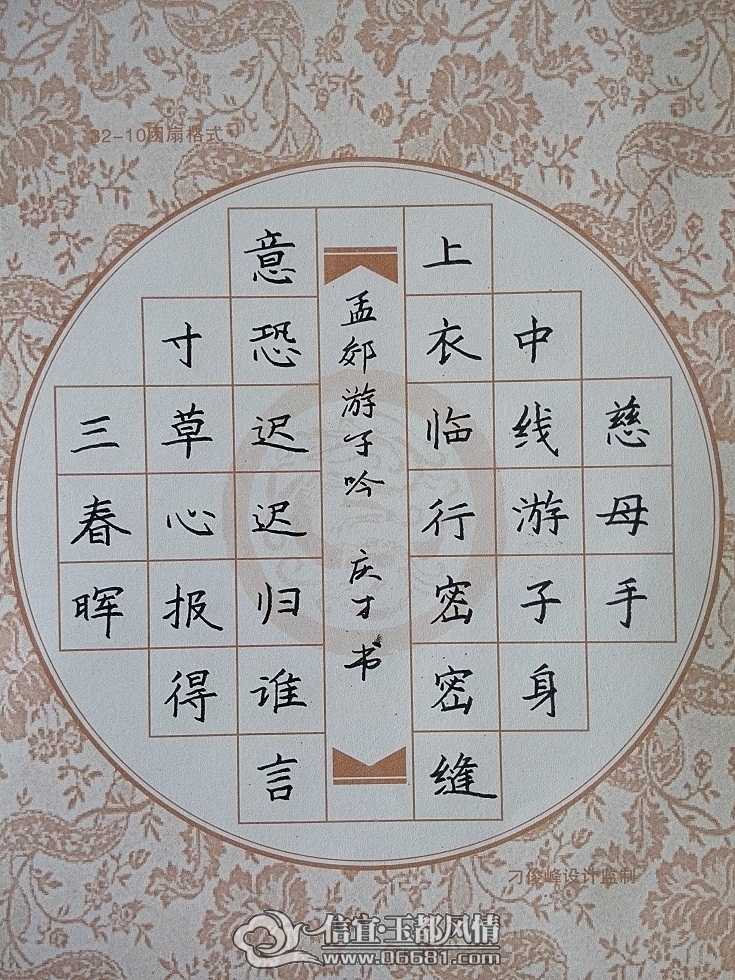 32-10团扇格式
慈母手
中线游子身
上衣临行密密缝
孟郊游子吟 庆才书
意恐迟迟归谁言
寸草心报得
三春晖
刁俊峰设计监制
信宜·玉都风情
www.06681.com